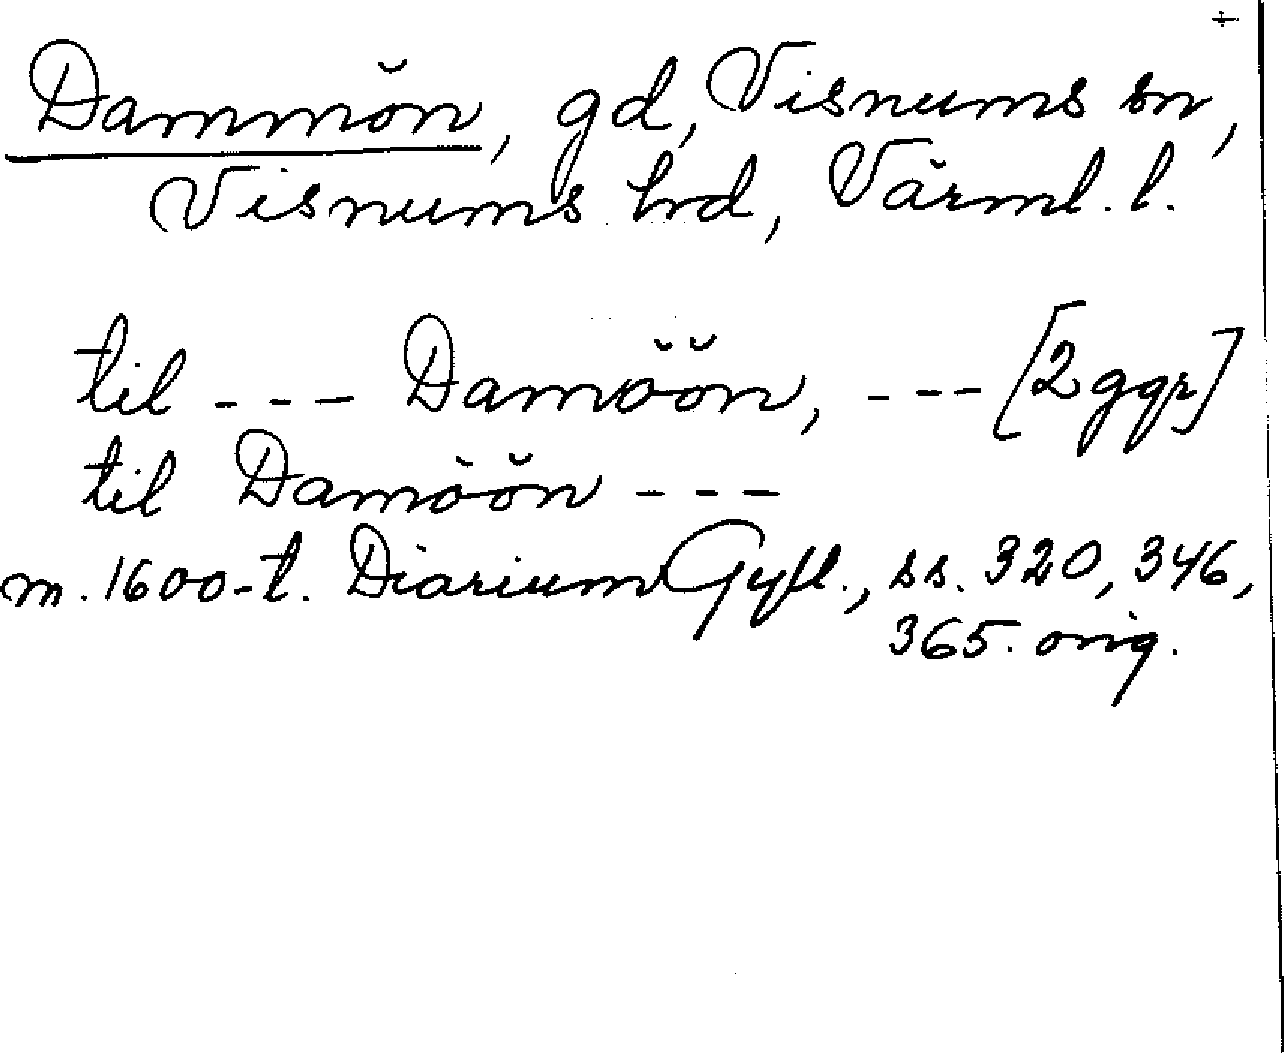 Dammön, gd, Visnums sn,
Visnums hrd, Värml. l.
til --- Damöön, --- [2 ggr]
til Damöön ---
m. 1600-t. Diarium Gyll., ss. 320, 346,
365. orig.